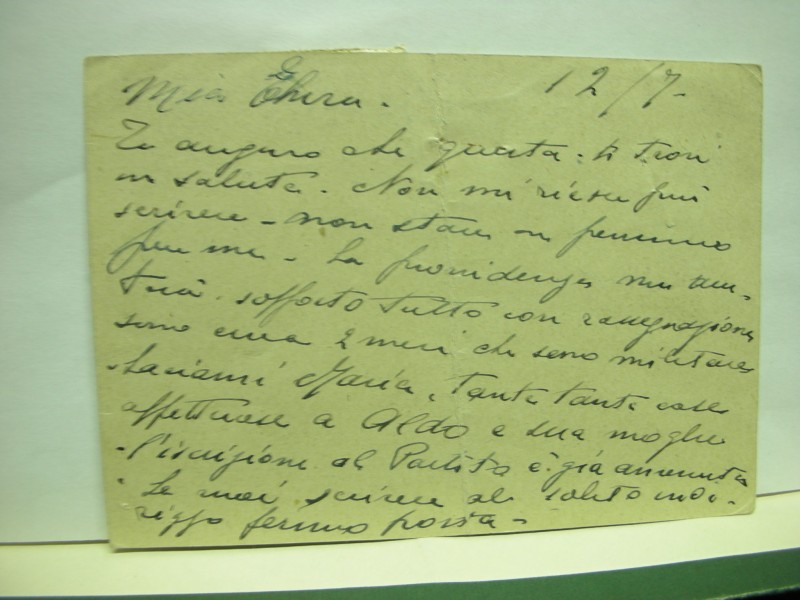 Mia Elvira. 12/7-
Ti auguro che questa ti trovi
in salute. Non mi riesce più
scrivere - non stare in pensiero
per me - La providenza mi aiu-
terà. sopporto tutto con rassegnazione
sono circa 2 mesi che sono militare
Maria, tante tante cose
affettuose a Aldo e sua moglie
- l'iscrizione al Partito è già avvenuta
- Se vuoi scrivere al solito indi-
rizzo fermo posta -